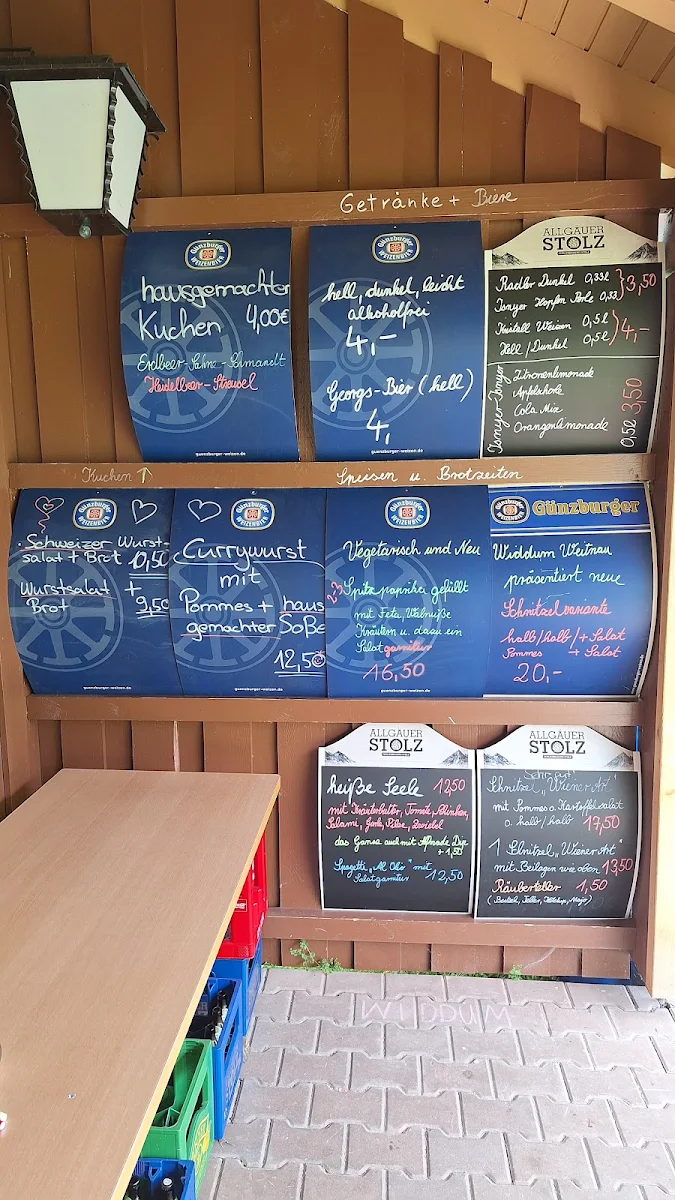 Getränke + Biere
Günzburger
WEIZENBIER
hausgemachter
Kuchen 4,00€
Erdbeer-Sahne-Schmandt
Heidelbeer-Streusel
guenzburger-weizen.de
Günzburger
WEIZENBIER
hell, dunkel, leicht
alkoholfrei
4,-
Georgs-Bier (hell)
4,
guenzburger-weizen.de
ALLGÄUER
STOLZ
Radler Dunkel 0,33l
Hopfen Perle 0,33 } 3,50
Kristall Weizen 0,5l
Hell / Dunkel 0,5l } 4,-
Zitronenlimonade
Apfelschorle
Cola Mix
Orangenlimonade
0,5l 3,50
Kuchen ↑
Speisen u. Brotzeiten
Günzburger
WEIZENBIER
Schweizer Wurst-
salat + Brot 10,50
Wurstsalat +
Brot 9,50
guenzburger-weizen.de
Günzburger
WEIZENBIER
Currywurst
mit
Pommes + haus
gemachter Soße
12,50€
guenzburger-weizen.de
Günzburger
WEIZENBIER
Vegetarisch und Neu
2-3 Spitzpaprika gefüllt
mit Feta, Walnüße
Kräutern u. dazu ein
Salatgarnitur
16,50
guenzburger-weizen.de
Günzburger
Widdum Weitnau
präsentiert neue
Schnitzelvariante
halb/halb/+ Salat
Pommes + Salat
20,-
ALLGÄUER
STOLZ
heiße Seele 12,50
mit Kräuterbutter, Tomate, Schinken,
Salami, Gurke, Pilze, Zwiebel
das Ganze auch mit Dip
+ 1,50
Spagetti "Al Olio" mit
Salatgarnitur 12,50
ALLGÄUER
STOLZ
Schnitzel "Wiener Art"
mit Pommes o. Kartoffelsalat
o. halb/halb 17,50
1 Schnitzel "Wiener Art"
mit Beilagen wie oben 13,50
Räuberteller 1,50
(Besteck, Teller, Ketchup, Mayo)
WIDDUM